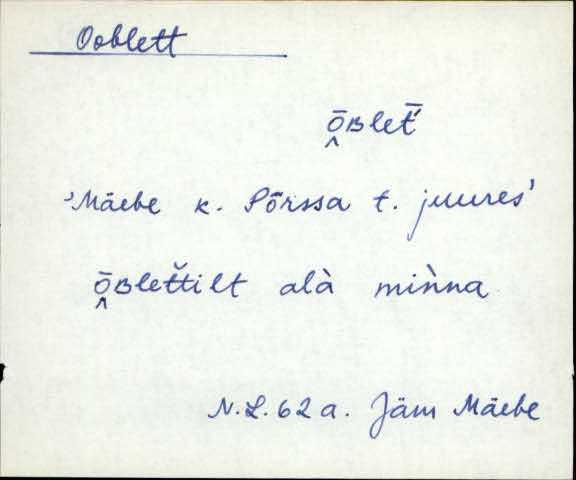 Ooblett
ō̭ʙlet̄'
'Mäebe k. Põrssa t. juures'
ō̭ʙlet̆tilt alà miǹna
N.L. 62 a. Jäm Mäebe